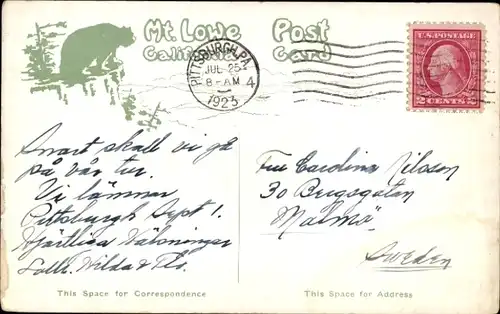 Mt. Lowe
California
Post
Card
PITTSBURGH, PA.
JUL 25
8-AM
1923
4
U.S. POSTAGE
2 CENTS 2
Snart skall vi gå
på vår tur.
Vi lämnar
Pittsburgh Sept 1.
Hjärtliga Hälsningar
Hilda &
Fru Carolina Nilsson
30 Bergsgatan
Malmö
Sweden
This Space for Correspondence
This Space for Address